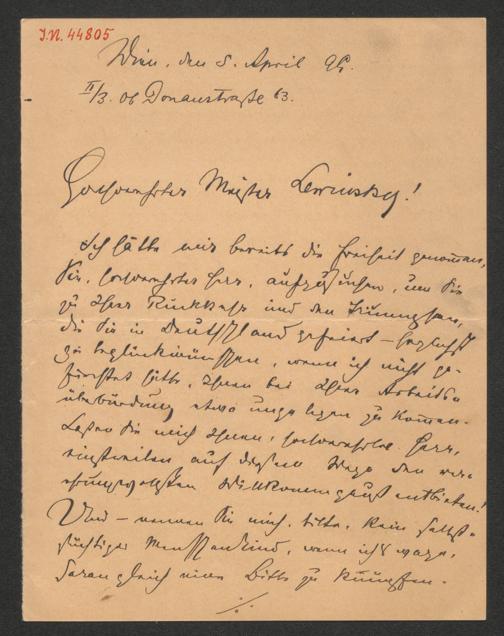 I.N. 44805
Wien, den 5. April 94.
II/3. Ob Donaustraße 63.
Hochverehrter Meister Lewinsky!
Ich hätte mir bereits die Freiheit genommen,
Sie, hochverehrter Herr, aufzusuchen, um Sie
zu Ihrer Rückkehr und den Triumphen,
die Sie in Deutschland gefeiert – herzlichst
zu beglückwünschen, wenn ich nicht ge-
fürchtet hätte, Ihnen bei Ihrer Arbeits-
überbürdung etwa ungelegen zu kommen.
Lassen Sie mich Ihnen, hochverehrter Herr,
einstweilen auf diesem Wege den ver-
ehrungsvollsten Willkommengruß entbieten!
Und – nennen Sie mich, bitte, kein selbst-
süchtiges Menschenkind, wenn ich's wage,
daran gleich eine Bitte zu knüpfen.
./.